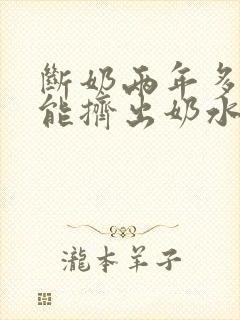 斷奶兩年多
能擠出奶水
瀧本羊子